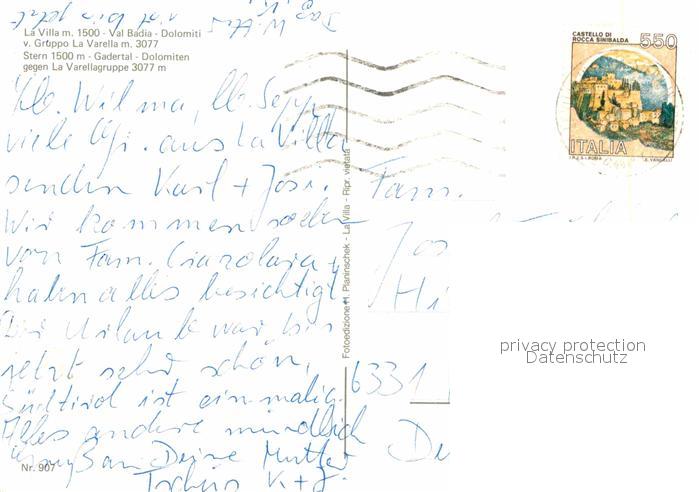 La Villa m. 1500 - Val Badia - Dolomiti
v. Gruppo La Varella m. 3077
Stern 1500 m - Gadertal - Dolomiten
gegen La Varellagruppe 3077 m
Lb. Wilma, lb. Sepp,
viele aus La Villa
senden Karl + Josi.
Wir kommen soeben
von Fam.
haben alles besichtigt
Der Urlaub war bis
jetzt sehr schön,
Südtirol ist einmalig.
Alles andere mündlich
Deine Mutter
Tschüs K + J.
Nr. 907
Fotoedizione H. Planinschek - La Villa - Ripr. vietata
CASTELLO DI
ROCCA SINIBALDA
550
ITALIA
I.P.Z.S. - ROMA
E. VANGELLI
Fam.
Jos
Hi
6331
privacy protection
Datenschutz